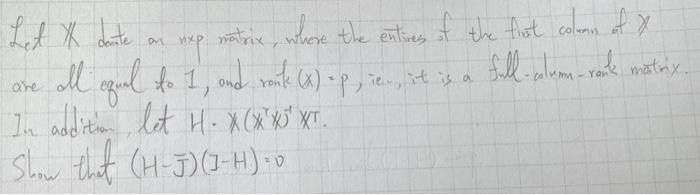 Let X denote an nxp matrix, where the entires of the first column of X
are all equal to 1, and rank (X) = p, ie., it is a full-column-rank matrix.
In addition, let H = X(XᵀX)⁻¹ Xᵀ.
Show that (H-J̄)(I-H)=0